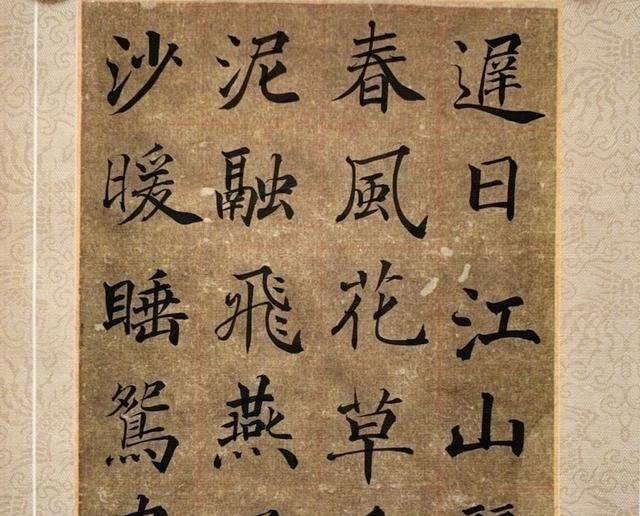 遲日江山
春風花草
泥融飛燕
沙暖睡鴛